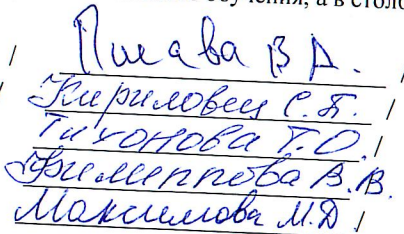 обучения, а в столб
/ Пигава В А. /
/ Кириловец С.П. /
Тихонова Т.О. /
Филиппова В.В.
Максимова М.Д /